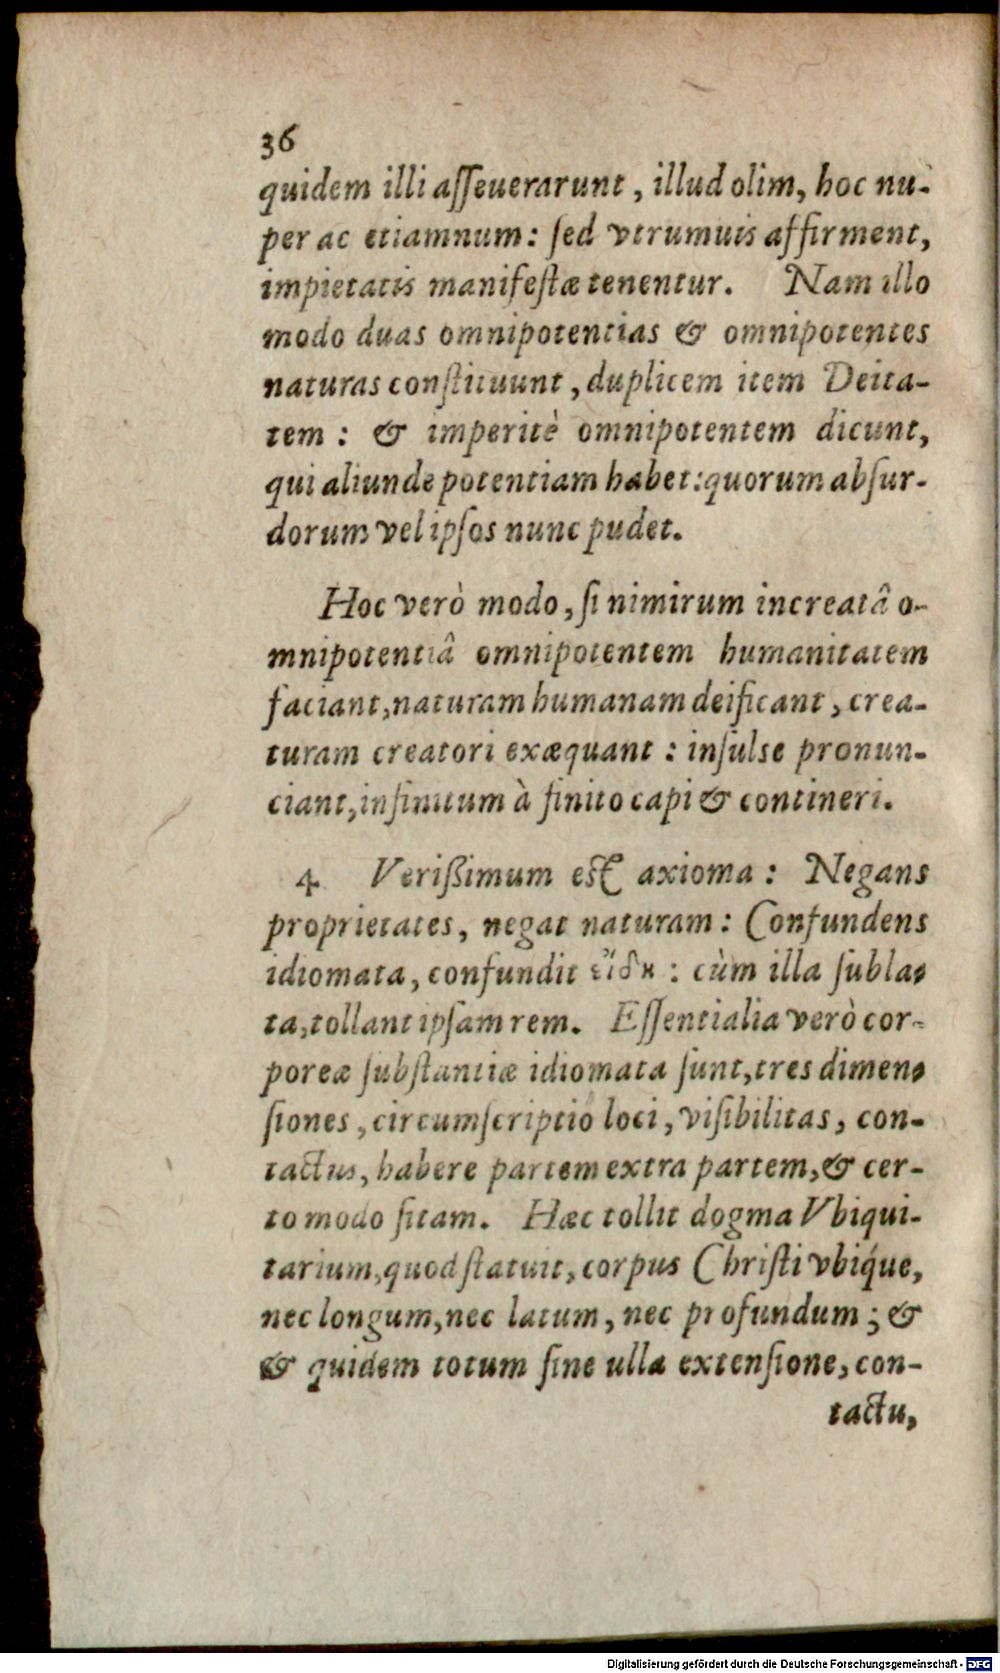 36
quidem illi asseuerarunt, illud olim, hoc nu-
per ac etiamnum: sed vtrumuis affirment,
impietatis manifestæ tenentur. Nam illo
modo duas omnipotentias & omnipotentes
naturas constituunt, duplicem item Deita-
tem: & imperitè omnipotentem dicunt,
qui aliunde potentiam habet: quorum absur-
dorum vel ipsos nunc pudet.
Hoc verò modo, si nimirum increatâ o-
mnipotentiâ omnipotentem humanitatem
faciant, naturam humanam deificant, crea-
turam creatori exæquant: insulse pronun-
ciant, infinitum à finito capi & contineri.
4. Verißimum est axioma: Negans
proprietates, negat naturam: Confundens
idiomata, confundit : cùm illa subla-
ta, tollant ipsam rem. Essentialia verò cor-
poreæ substantiæ idiomata sunt, tres dimen-
siones, circumscriptio loci, visibilitas, con-
tactus, habere partem extra partem, & cer-
to modo sitam. Hæc tollit dogma Vbiqui-
tarium, quod statuit, corpus Christi vbique,
nec longum, nec latum, nec profundum; &
& quidem totum sine ulla extensione, con-
tactu,
Digitalisierung gefördert durch die Deutsche Forschungsgemeinschaft - DFG